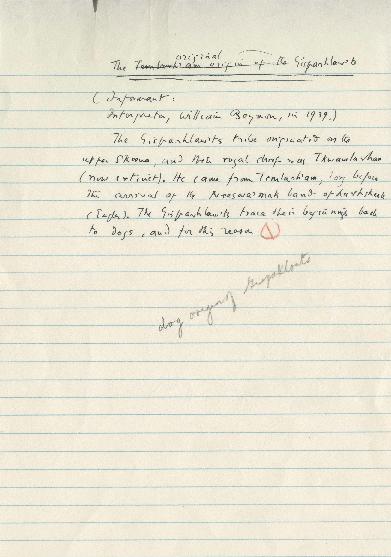 original
The Temlarham origin of the Gispaxlawts
(Informant:
Interpreter, William Beynon, in 1939.)
The Gispaxlawts tribe originated on the
upper Skeena, and their royal chief was
(now extinct). He came from Temlarham, long before
the arrival of the band of
(Eagles). The Gispaxlawts trace their beginnings back
to dogs, and for this reason 1
dog origin of Gispaxloats